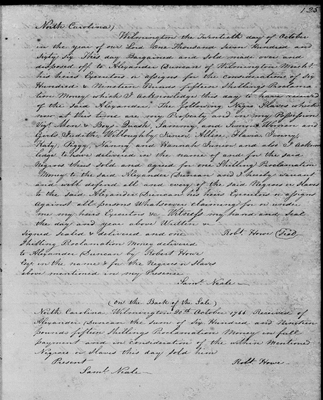 135
North Carolina)
Wilmington the Twentieth day of October
in the year of our Lord One Thousand Seven Hundred and
Sixty Six This day Bargained and Sold made over and
disposed off to Alexander Duncan of Wilmington
his heirs Executors or assigns for the consideration of Six
Hundred & Nineteen Pounds fifteen Shillings Proclama-
tion Money which I acknowledge this day to have received
of the said Alexander The following Negro Slaves which
now at this time are my Property and in my Possession
and
Girls Judith, Willoughby Junr, Allice, Flavia Fanny,
Katy, Peggy, Nanny and Hannah Junior and also I acknow
ledge to have delivered in the name of all for the said
Negroes thus sold and agreed for one Shilling Proclamation
Money to the said Alexander Duncan and I hereby warrant
and will defend all and every of the said Negroes or Slaves
to the said Alexander Duncan his heirs Executors or assigns
against all persons Whatsoever claiming for or under
me my heirs Executors & Witness my hand and Seal
the day and year above Written
Signed Sealed & delivered and one Robt Howe (Seal)
Shilling Proclamation Money delivered
to Alexander Duncan by Robert Howe
Esqr in the name & for the Negroes or Slaves
above mentioned in my Presence
Saml Neale
(On the Back of the Sale)
North Carolina Wilmington 20th October 1766 Received of
Alexander Duncan the sum of Six Hundred and Nineteen
pounds fifteen Shillings Proclamation Money in full
payment and in consideration of the within Mentioned
Negroes or Slaves this day sold him
Present Robt Howe
Saml Neale